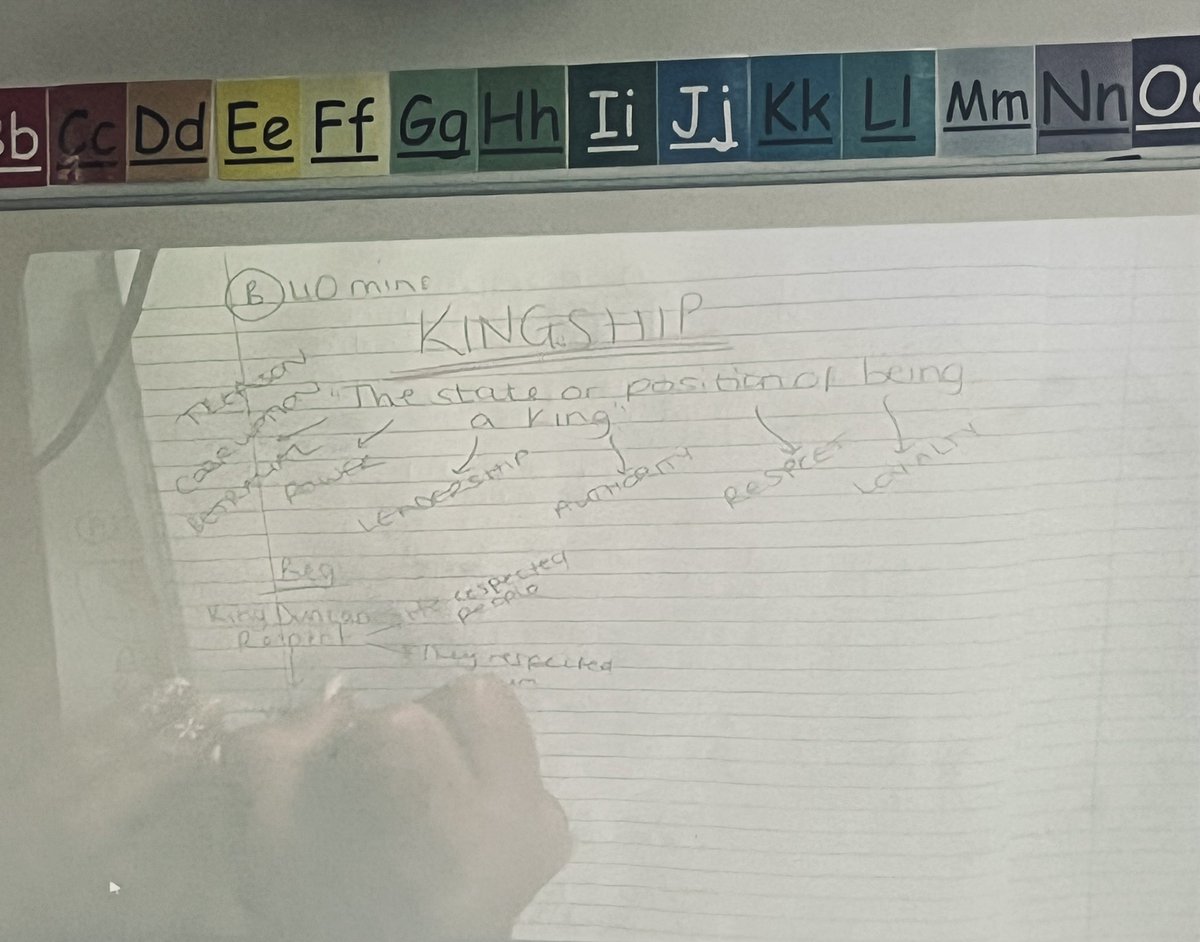 Bb Cc Dd Ee Ff Gg Hh Ii Jj Kk Ll Mm Nn O
B 40 mins
KINGSHIP
"The state or position of being
a king"
TREASON
BETRAYAL
POWER
LEADERSHIP
AUTHORITY
RESPECT
LOYALTY
Beg
King Duncan
respected
people
They respected